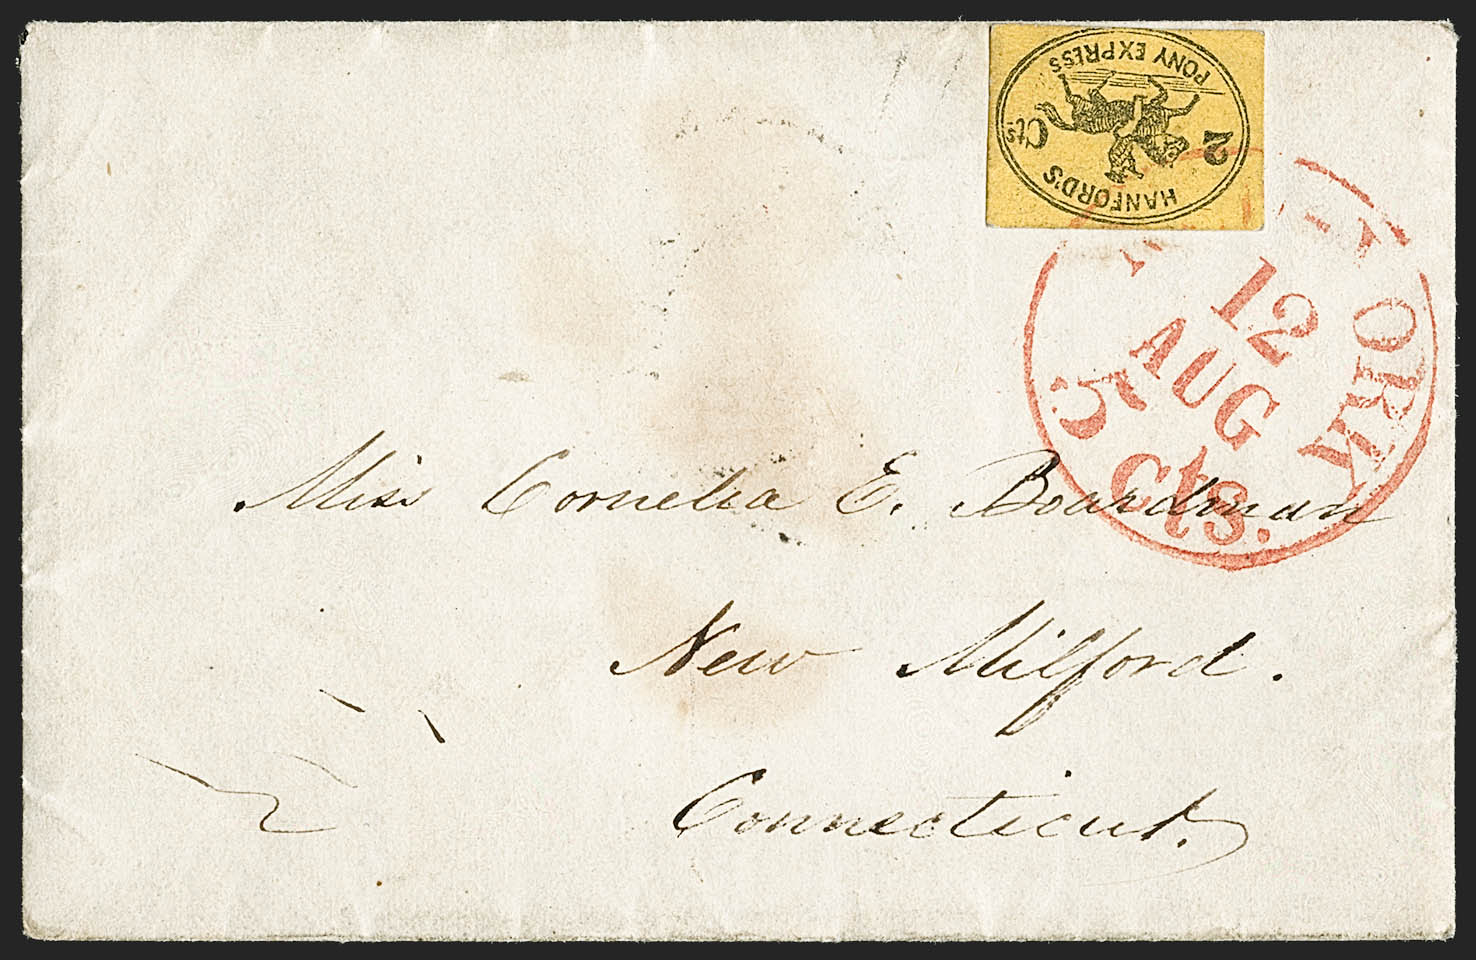 HANFORD'S
2 Cts.
PONY EXPRESS
NEW-YORK
12
AUG
5 cts.
Miss Cornelia E. Boardman
New Milford.
Connecticut.